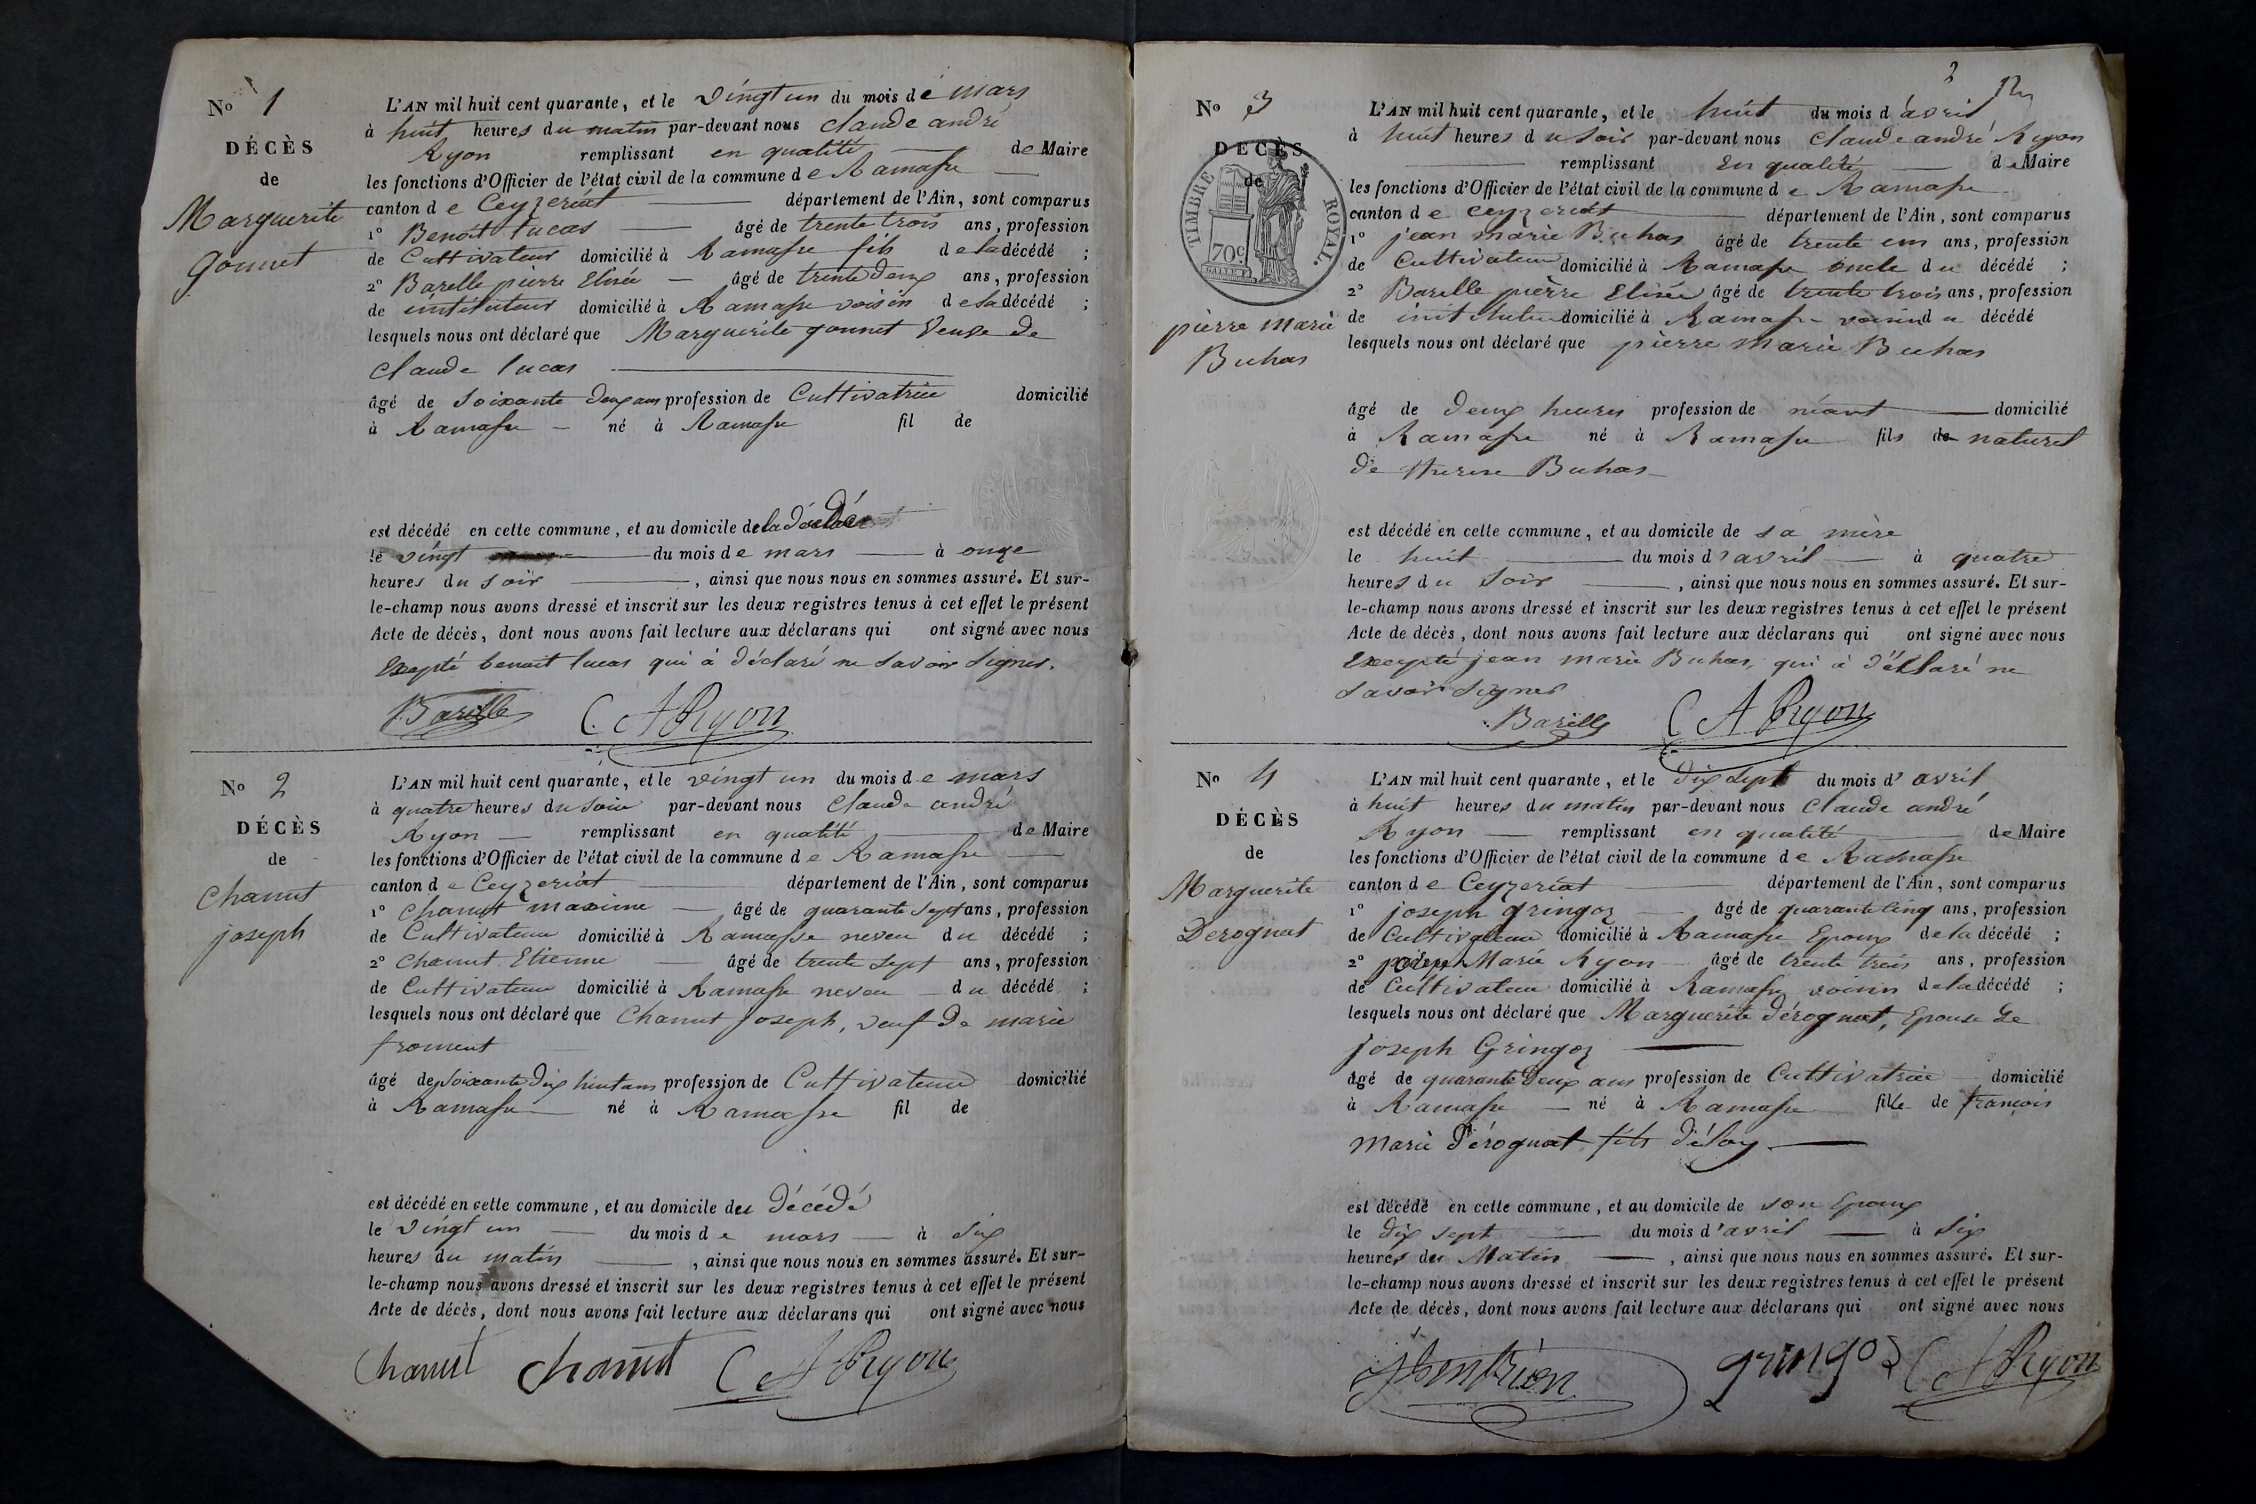 No 1
DÉCÈS
de
Marguerite
Gonnet
L'AN mil huit cent quarante, et le vingt un du mois de mars
à huit heures du matin par-devant nous claude andré
Ryon remplissant en qualité de Maire
les fonctions d'Officier de l'état civil de la commune de Ramasse
canton de Ceyzeriat département de l'Ain, sont comparus
1° Benoit Lucas âgé de trente trois ans, profession
de Cultivateur domicilié à Ramasse fils de la décédé ;
2° Barelle pierre Elisée âgé de trente deux ans, profession
de instituteur domicilié à Ramasse voisin de la décédé ;
lesquels nous ont déclaré que Marguerite gonnet Veuve de
claude lucas
âgé de soixante deux ans profession de Cultivatrice domicilié
à Ramasse né à Ramasse fil de
est décédé en cette commune, et au domicile de la décédée
le vingt du mois de mars à onze
heures du soir, ainsi que nous nous en sommes assuré. Et sur-
le-champ nous avons dressé et inscrit sur les deux registres tenus à cet effet le présent
Acte de décès, dont nous avons fait lecture aux déclarans qui ont signé avec nous
Excepté benoit lucas qui à déclaré ne savoir signer.
Barelle C A Ryon
No 2
DÉCÈS
de
Chanut
joseph
L'AN mil huit cent quarante, et le vingt un du mois de mars
à quatre heures du soir par-devant nous claude andré
Ryon remplissant en qualité de Maire
les fonctions d'Officier de l'état civil de la commune de Ramasse
canton de Ceyzeriat département de l'Ain, sont comparus
1° Chanut maxime âgé de quarante sept ans, profession
de Cultivateur domicilié à Ramasse neveu du décédé ;
2° Chanut Etienne âgé de trente sept ans, profession
de Cultivateur domicilié à Ramasse neveu du décédé ;
lesquels nous ont déclaré que Chanut joseph, veuf de marie
froment
âgé de soixante dix huit ans profession de Cultivateur domicilié
à Ramasse né à Ramasse fil de
est décédé en cette commune, et au domicile du décédé
le vingt un du mois de mars à six
heures du matin, ainsi que nous nous en sommes assuré. Et sur-
le-champ nous avons dressé et inscrit sur les deux registres tenus à cet effet le présent
Acte de décès, dont nous avons fait lecture aux déclarans qui ont signé avec nous
Chanut Chanut C A Ryon
2
No 3
DÉCÈS
de
TIMBRE ROYAL.
70c.
pierre marie
Buhas
L'AN mil huit cent quarante, et le huit du mois d'avril
à huit heures du soir par-devant nous claude andré Ryon
remplissant en qualité de Maire
les fonctions d'Officier de l'état civil de la commune de Ramasse
canton de ceyzeriat département de l'Ain, sont comparus
1° jean marie Buhas âgé de trente un ans, profession
de Cultivateur domicilié à Ramasse oncle du décédé ;
2° Barelle pierre Elisée âgé de trente trois ans, profession
de instituteur domicilié à Ramasse voisin du décédé
lesquels nous ont déclaré que pierre marie Buhas
âgé de deux heures profession de néant domicilié
à Ramasse né à Ramasse fils de naturel
de therese Buhas
est décédé en cette commune, et au domicile de sa mère
le huit du mois d'avril à quatre
heures du soir, ainsi que nous nous en sommes assuré. Et sur-
le-champ nous avons dressé et inscrit sur les deux registres tenus à cet effet le présent
Acte de décès, dont nous avons fait lecture aux déclarans qui ont signé avec nous
Excepté jean marie Buhas, qui à déclaré ne
savoir signer
Barelle C A Ryon
No 4
DÉCÈS
de
Marguerite
Derognat
L'AN mil huit cent quarante, et le dix sept du mois d'avril
à huit heures du matin par-devant nous claude andré
Ryon remplissant en qualité de Maire
les fonctions d'Officier de l'état civil de la commune de Ramasse
canton de Ceyzeriat département de l'Ain, sont comparus
1° joseph gringoz âgé de quarante cinq ans, profession
de Cultivateur domicilié à Ramasse Epoux de la décédé ;
2° joseph Marie Ryon âgé de trente trois ans, profession
de Cultivateur domicilié à Ramasse voisin de la décédé ;
lesquels nous ont déclaré que Marguerite dérognat, Epouse de
joseph Gringoz
âgé de quarante deux ans profession de Cultivatrice domicilié
à Ramasse né à Ramasse fille de françois
marie dérognat fils d'éloy
est décédé en cette commune, et au domicile de son Epoux
le dix sept du mois d'avril à six
heures du Matin, ainsi que nous nous en sommes assuré. Et sur-
le-champ nous avons dressé et inscrit sur les deux registres tenus à cet effet le présent
Acte de décès, dont nous avons fait lecture aux déclarans qui ont signé avec nous
gringoz C A Ryon